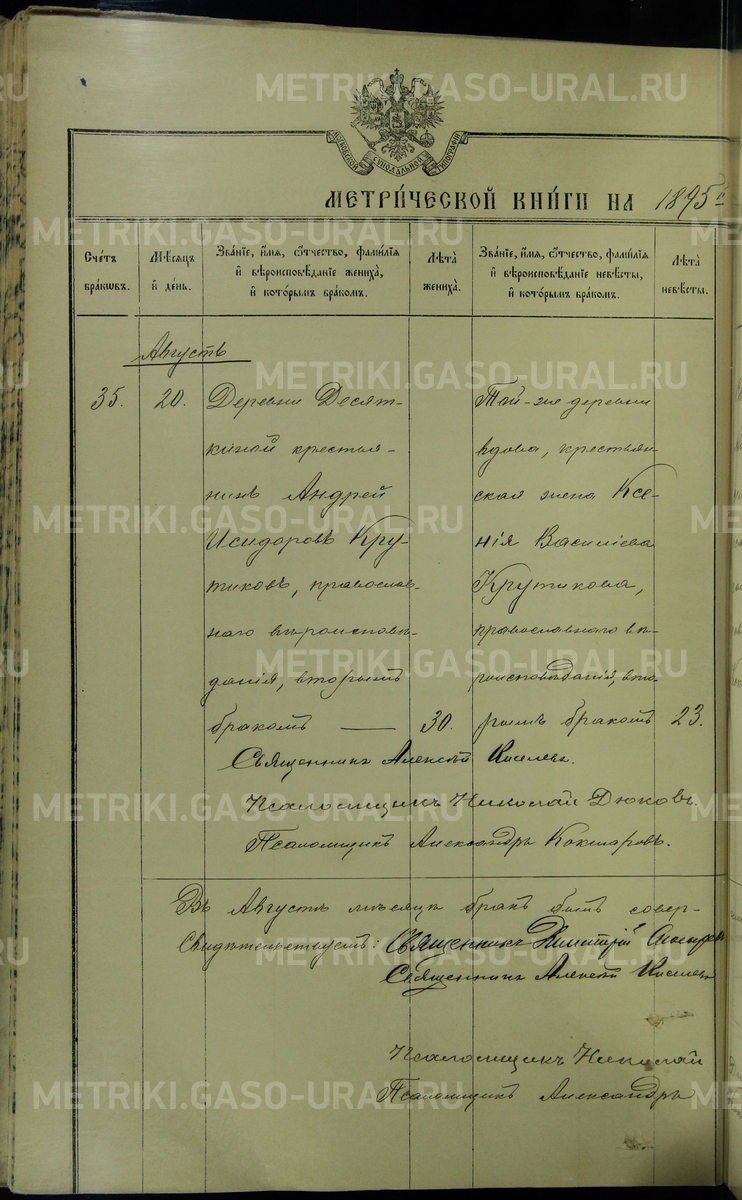 METRIKI.GASO-URAL.RU
МОСКОВСКОЙ СѴНОДАЛЬНОЙ ТИПОГРАФІИ
МЕТРИ́ЧЕСКОЙ КНИ́ГИ НА 1895 й
Сче́тъ бра́кѡвъ.
Мѣ́сяцъ и҆ де́нь.
Зва́нїе, и҆́мѧ, ѻ҆́тчество, фами́лїѧ и҆ вѣроисповѣ́данїе жениха̀, и҆ кото́рымъ бра́комъ.
Лѣ́та жениха̀.
Зва́нїе, и҆́мѧ, ѻ҆́тчество, фами́лїѧ и҆ вѣроисповѣ́данїе невѣ́сты, и҆ кото́рымъ бра́комъ.
Лѣ́та невѣ́сты.
Августъ
35.
20.
Деревни Десят-
киной крестья-
нинъ Андрей
Исидоровъ Кру-
тиковъ, православ-
наго вѣроисповѣ-
данія, вторымъ
бракомъ — 30.
Той-же деревни
вдова, крестьян-
ская жена Ксе-
нія Василіева
Крутикова,
православнаго вѣ-
роисповѣданія, вто-
рымъ бракомъ 23.
Священникъ Алексѣй Киселевъ.
Псаломщикъ Николай Дюковъ.
Псаломщикъ Александръ Кокшаровъ.
Въ Августѣ мѣсяцѣ бракъ былъ совер-
Свидѣтельствуютъ: Священникъ Димитрій
Священникъ Алексѣй Киселевъ
Псаломщикъ Николай
Псаломщикъ Александръ